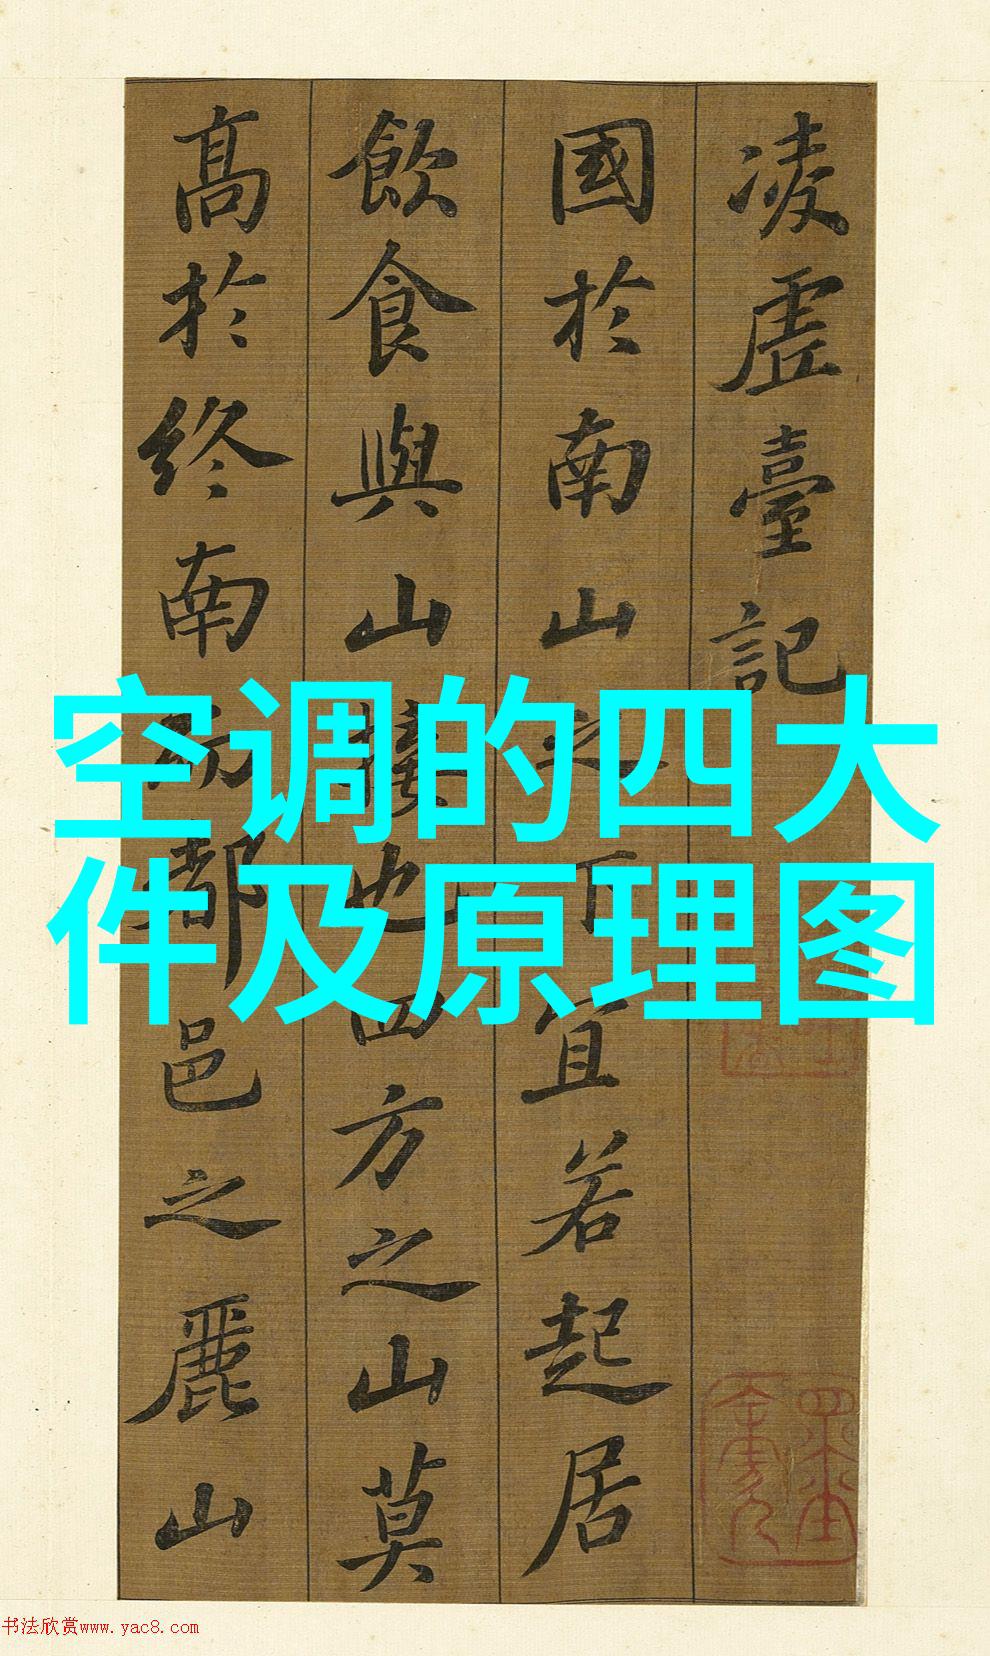 凌虚臺記
國於南山之下宜若起居
飲食與山接也四方之山莫
高於终南而都邑之麗山
空调的四大
件及原理图
书法欣赏www.yac8.com